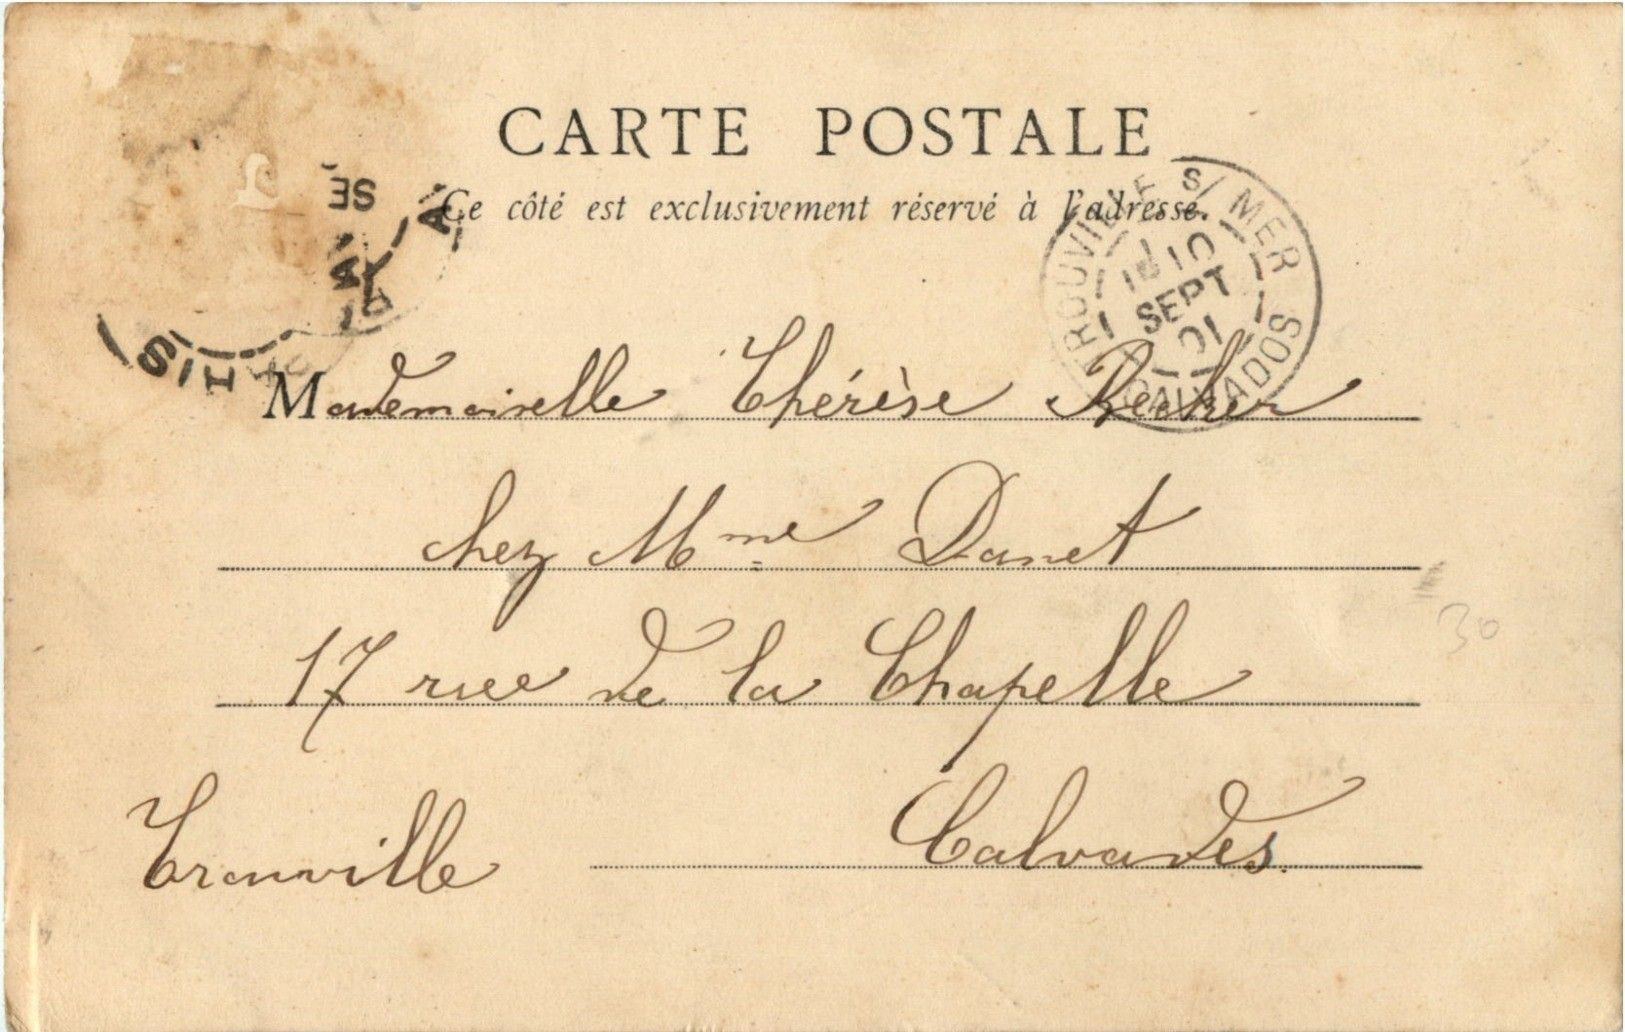 CARTE POSTALE
Ce côté est exclusivement réservé à l'adresse.
TROUVILLE S/ MER
10
SEPT
01
CALVADOS
Mademoiselle Thérèse Recher
chez Mme Danet
17 rue de la Chapelle
Trouville Calvados.
30